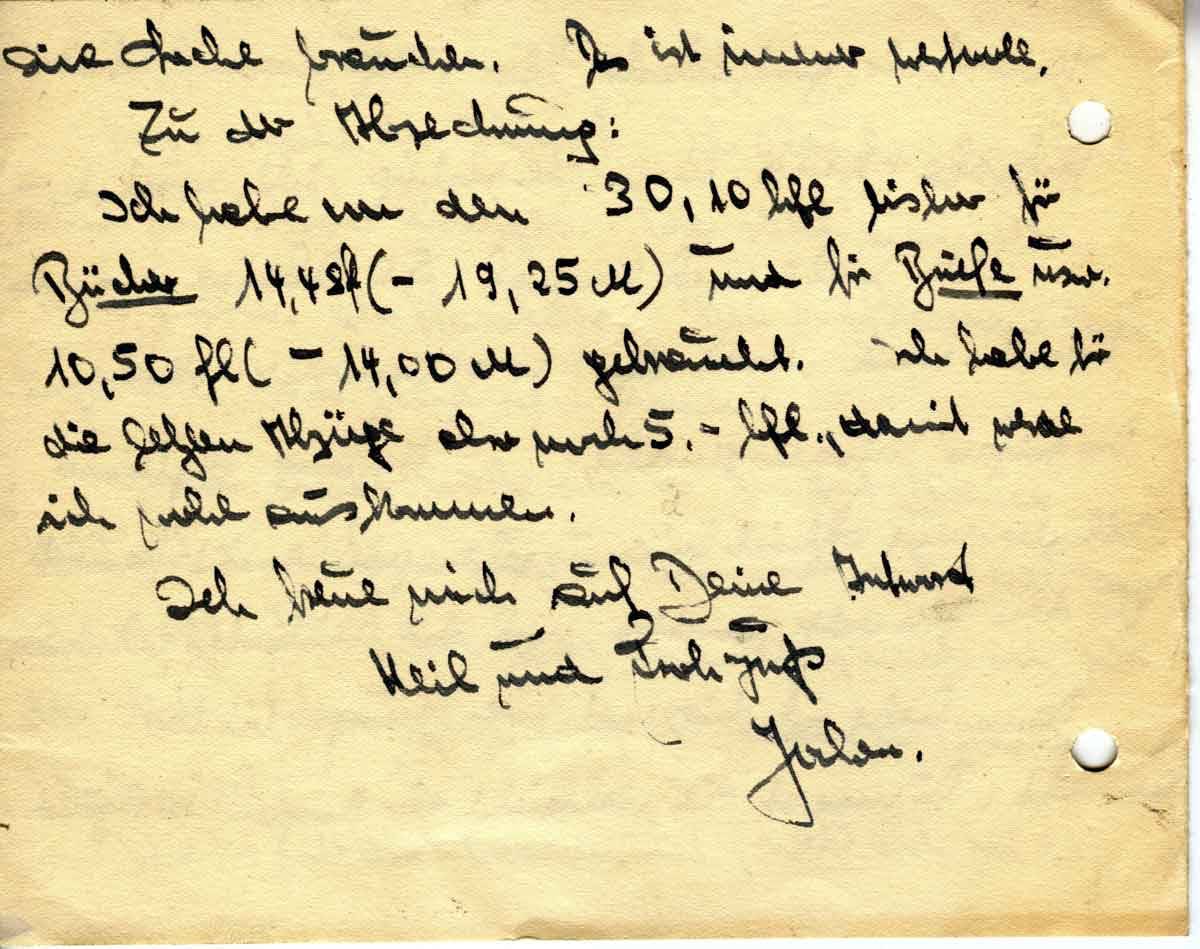 die Sache brauchen. Es ist immer wertvoll.
Zu der Abrechnung:
Ich habe von den 30,10 hfl bisher für
Bücher 14,42 fl (- 19,25 M) und für Briefe usw.
10,50 fl (- 14,00 M) gebraucht. Ich habe für
die Abzüge also noch 5.- hfl., damit werde
ich wohl auskommen.
Ich freue mich auf Deine Antwort
Heil und